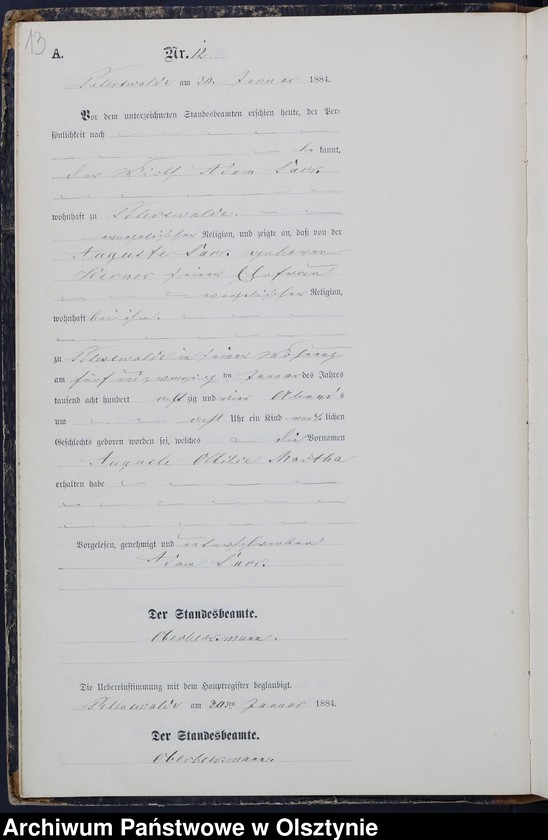 13
A. Nr. 12
Peterswalde am 30. Januar 1884.
Vor dem unterzeichneten Standesbeamten erschien heute, der Per-
sönlichkeit nach
be kannt,
der Adam
wohnhaft zu Peterswalde.
evangelischer Religion, und zeigte an, daß von der
Auguste geborenen
seiner Ehefrau
evangelischer Religion,
wohnhaft bei ihm.
zu Peterswalde in seiner Wohnung
am fünf und zwanzig ten Januar des Jahres
tausend acht hundert acht zig und vier Abends
um acht Uhr ein Kind weib lichen
Geschlechts geboren worden sei, welches die Vornamen
Auguste Ottilie Martha
erhalten habe
Vorgelesen, genehmigt und unterschrieben
Adam
Der Standesbeamte.
Die Uebereinstimmung mit dem Hauptregister beglaubigt.
Peterswalde am 30. ten Januar 1884.
Der Standesbeamte.
Archiwum Państwowe w Olsztynie